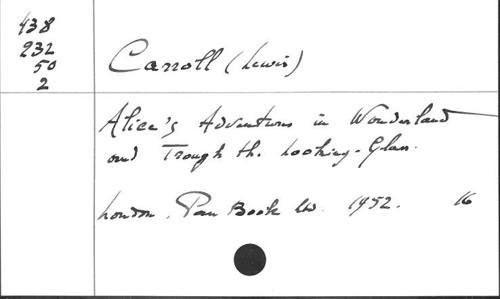 438
232
50
2
Carroll (Lewis)
Alice's Adventures in Wonderland
and Trough th. Looking-Glass.
London. Pan Book Ltd. 1952. 16